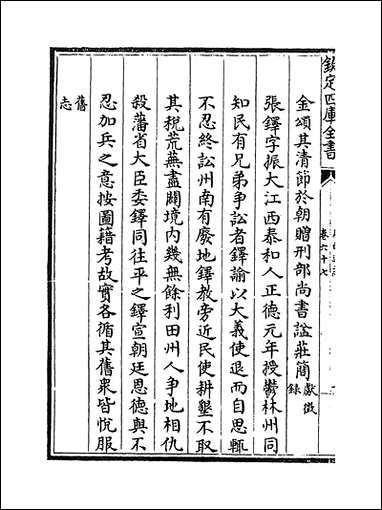 欽定四庫全書
卷六十七
金頌其清節於朝贈刑部尚書諡莊簡獻徵錄
張鐸字振大江西泰和人正德元年授鬱林州同
知民有兄弟爭訟者鐸諭以大義使退而自思輒
不忍終訟州南有廢地鐸教旁近民使耕墾不取
其税荒蕪盡闢境内幾無餘利田州人爭地相仇
殺藩省大臣委鐸同往平之鐸宣朝廷恩德與不
忍加兵之意按圖籍考故實各循其舊衆皆悦服
舊志